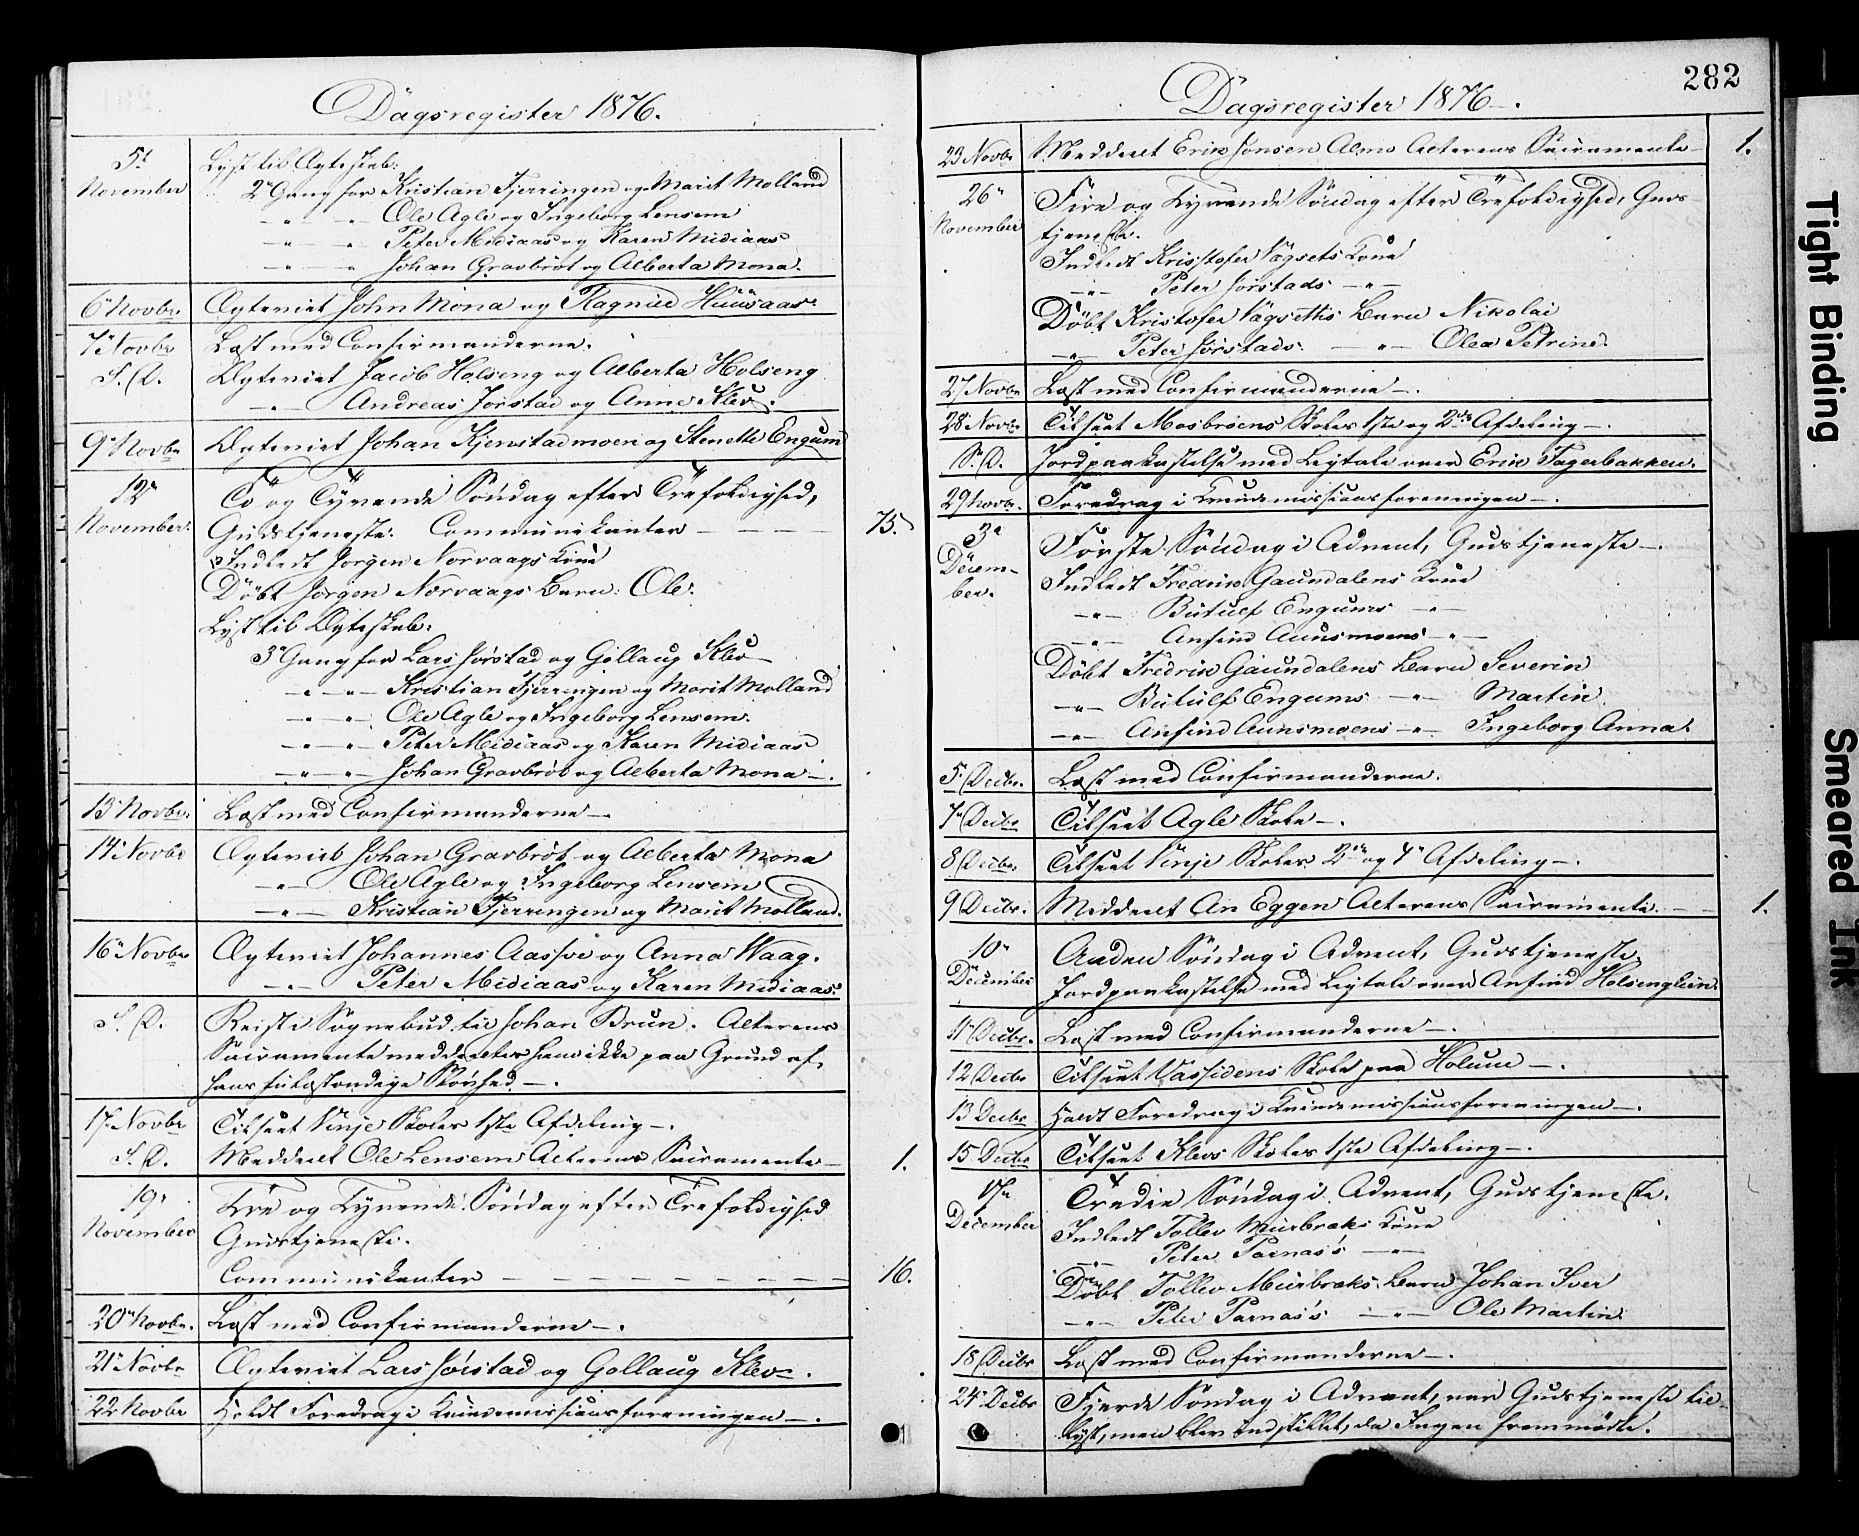 Dagsregister 1876.
5t November
Lyst til Ægteskab:
2" Gang for Kristian Fjerringen og Marit Molland
" " Ole Agle og Ingeborg Lensem
" " Peter Mediaas og Karen Mediaas
" " Johan Gravbröt og Alberta Mona.
6" Novbr. Ægteviet John Mona og Ragnild Huusaas.
7" Novbr Læst med Confirmanderne.
S. D. Ægteviet Jacob Holseng og Alberta Holseng
" Andreas Jørstad og Anne Klev.
9" Novbr Ægteviet Johan Kjenstadmoen og Stenette Engum
12" November.
To og Tyvende Søndag efter Trefoldighed,
Gudstjeneste. Communikanter — — — 75.
Indledt Jørgen Norvaags Kone
Döbt Jørgen Norvaags Barn: Ole.
Lyst til Ægteskab:
3" Gang for Lars Jørstad og Gollaug Klev
" " Kristian Fjerringen og Marit Molland
" " Ole Agle og Ingeborg Lensem.
" " Peter Mediaas og Karen Mediaas
" " Johan Gravbröt og Alberta Mona —.
13" Novbr. Læst med Confirmanderne —.
14" Novbr Ægteviet Johan Gravbröt og Alberta Mona
" Ole Agle og Ingeborg Lensem
" Kristian Fjerringen og Marit Molland.
16" Novbr Ægteviet Johannes Aasve og Anna Waag.
" Peter Mediaas og Karen Mediaas.
S. D. Reist i Sognebud til Johan Brun. Alterens
Sacramente meddeeltes ham ikke paa Grund af
hans fuldstændige Sløvhed —.
17" Novbr Tilseet Vinje Skoles 1ste Afdeling —.
S. D. Meddeelt Ole Lensem Alterens Sacramente — 1.
19" November
Tre og Tyvende Søndag efter Trefoldighed
Gudstjeneste.
Communikanter — — — — — — — 16.
20" Novbr. Læst med Confirmanderne —.
21" Novbr Ægteviet Lars Jørstad og Gollaug Klev —.
22 Novbr Holdt Foredrag i Kvindemissionsforeningen —.
282
Dagsregister 1876 —.
23 Novbr Meddeelt Erik Jonsen Almo Alterens Sacramente — 1.
26" November
Fire og Tyvende Søndag efter Trefoldighed, Guds-
tjeneste.
Indledt Kristofer Vågsets Kone
" Peter Jørstads "
Döbt Kristofer Vågseths Barn Nikolai
" Peter Jørstads " Olea Petrine.
27 Novbr Læst med Confirmanderne —.
28" Novbr Tilseet Mosbröens Skoles 1ste og 2den Afdeling —.
S. D. Jordpaakastelse med Ligtale over Erik Fagerbakken.
29 Novbr. Foredrag i Kvindemissionsforeningen —.
3" Decem-
ber.
Første Søndag i Advent, Gudstjeneste —.
Indledt Fredrik Gaundalens Kone
" Botulf Engums "
" Anfind Aunsmoens "
Döbt Fredrik Gaundalens Barn Severin
" Botulf Engums " Martin
" Anfind Aunsmoens " Ingeborg Anna.
5" Decbr. Læst med Confirmanderne.
7" Decbr Tilseet Agle Skole —.
8" Decbr. Tilseet Vinje Skoles 2den og 4" Afdeling —.
9 Decbr. Meddeelt An Eggen Alterens Sacramente. — 1.
10" December
Anden Søndag i Advent, Gudstjeneste.
Jordpaakastelse med Ligtale over Anfind Holsenglien.
11" Decbr. Læst med Confirmanderne —.
12 Decbr Tilseet Vassidens Skole paa Holum —.
13 Decbr Holdt Foredrag i Kvindemissionsforeningen —.
15 Decbr Tilseet Klevs Skoles 1ste Afdeling —.
17" December
Tredie Søndag i Advent, Gudstjeneste.
Indledt Tollev Murbræks Kone
" Peter Parnas's "
Döbt Tollev Murbræks Barn Johan Iver
" Peter Parnas's " Ole Martin.
18 Decbr Læst med Confirmanderne —.
24" Decbr Fjerde Søndag i Advent, var Gudstjeneste til-
lyst, men blev indstillet, da Ingen fremmødte.
Tight Binding
Smeared Ink